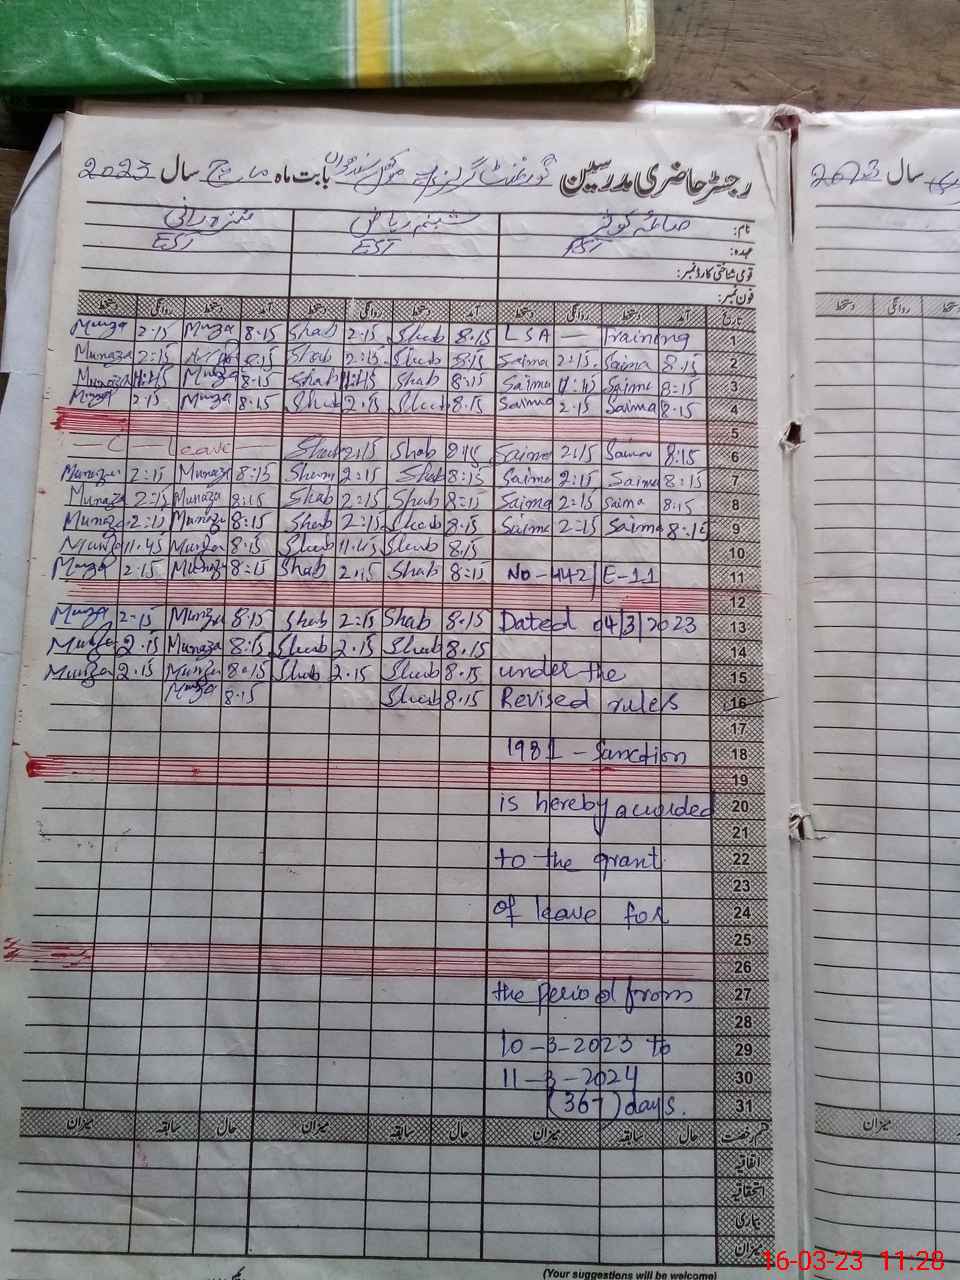 رجسٹر حاضری مدرسین گورنمنٹ گرلز بابت ماہ مارچ سال 2023
سال 2023
نام: صائمہ کوثر شبنم ریاض منزہ رانی
عہدہ: PST EST EST
قومی شناختی کارڈ نمبر:
فون نمبر:
تاریخ آمد دستخط روانگی دستخط آمد دستخط روانگی دستخط آمد دستخط روانگی دستخط
Munza 2.15 Munza 8.15 Shab 2.15 Shab 8.15 LSA — Training 1
Munaza 2:15 8:15 Shab 2:15 Shab 8:15 Saima 2:15 Saima 8:15 2
Munaza 11:45 Munza 8:15 Shab 11:45 Shab 8:15 Saima 11:45 Saima 8:15 3
Munza 2.15 Munza 8.15 Shab 2.15 Shab 8.15 Saima 2.15 Saima 8.15 4
5
— C — Leave — Shab 2:15 Shab 8:15 Saima 2:15 Saima 8:15 6
Munaza 2:15 Munaza 8:15 Sham 2:15 Shab 8:15 Saima 2:15 Saima 8:15 7
Munaza 2:15 Munaza 8:15 Shab 2:15 Shab 8:15 Saima 2:15 Saima 8.15 8
Munaza 2:15 Munaza 8:15 Shab 2:15 Shab 8.15 Saima 2:15 Saima 8.15 9
Munza 11.45 Munza 8.15 Shab 11.45 Shab 8.15 10
Munza 2.15 Munza 8:15 Shab 2:15 Shab 8:15 No-442/E-11 11
12
Munza 2-15 Munza 8.15 Shab 2:15 Shab 8.15 Dated 04/3/2023 13
Munza 2.15 Munaza 8:15 Shab 2.15 Shab 8.15 14
Munza 2.15 Munza 8.15 Shab 2.15 Shab 8.15 under the 15
Munza 8.15 Shab 8.15 Revised rules 16
17
1981 - Sanction 18
19
is hereby accorded 20
21
to the grant 22
23
of leave for 24
25
26
the period from 27
28
10-3-2023 to 29
11-3-2024 30
(367) days. 31
قسم رخصت حال سابقہ میزان حال سابقہ میزان حال سابقہ میزان
اتفاقیہ
استحقاقیہ
بیماری
میزان
(Your suggestions will be welcome)
16-03-23 11:28